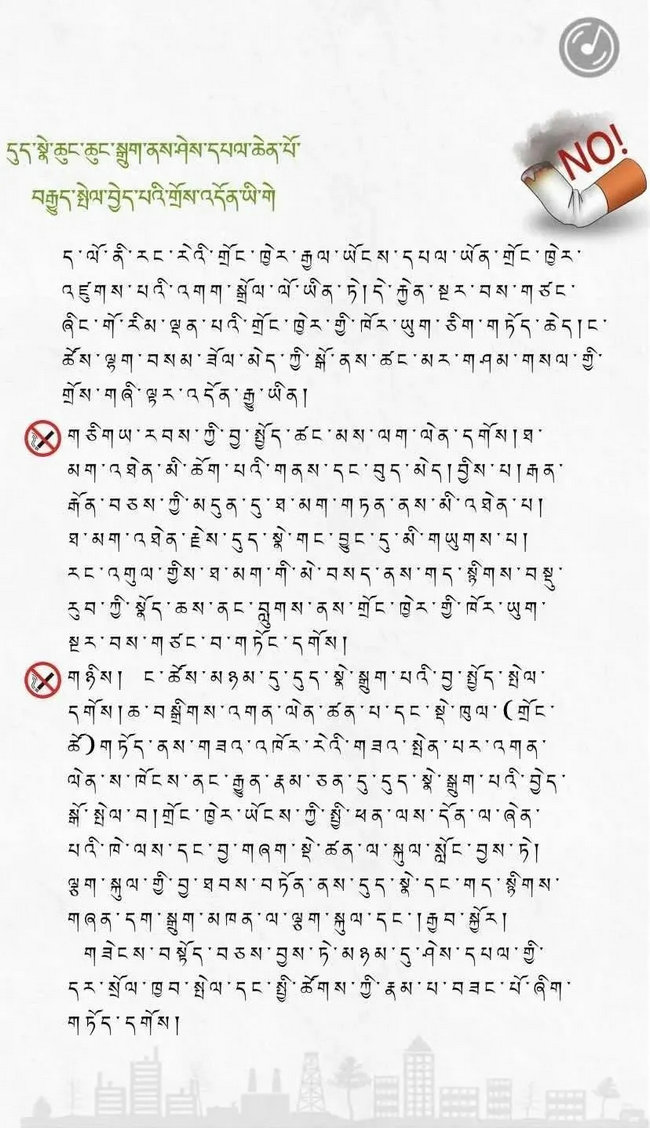 དུད་སྣེ་ཆུང་ཆུང་སྒྲུག་ནས་ཤེས་དཔལ་ཆེན་པོ་
བརྒྱུད་སྤེལ་བྱེད་པའི་གྲོས་འདོན་ཡི་གེ
NO!
ད་ལོ་ནི་རང་རེའི་གྲོང་ཁྱེར་རྒྱལ་ཡོངས་དཔལ་ཡོན་གྲོང་ཁྱེར་
འཛུགས་པའི་འགག་སྒྲོལ་ལོ་ཡིན་ཏེ།དེ་རྐྱེན་སྔར་བས་གཙང་
ཞིང་གོ་རིམ་ལྡན་པའི་གྲོང་ཁྱེར་གྱི་ཁོར་ཡུག་ཅིག་གཏོད་ཆེད།ང་
ཚོས་ལྷག་བསམ་ཟོལ་མེད་ཀྱི་སྒོ་ནས་ཚང་མར་གཤམ་གསལ་གྱི་
གྲོས་གཞི་ལྟར་འདོན་རྒྱུ་ཡིན།
གཅིགཡ་རབས་ཀྱི་བྱ་སྤྱོད་ཚང་མས་ལག་ལེན་དགོས།ཐ་
མག་འཐེན་མི་ཆོག་པའི་གནས་དང་བུད་མེད།བྱིས་པ།རྒན་
རྒོན་བཅས་ཀྱི་མདུན་དུ་ཐ་མག་གཏན་ནས་མི་འཐེན་པ།
ཐ་མག་འཐེན་རྗེས་དུད་སྣེ་གང་བྱུང་དུ་མི་གཡུགས་པ།
རང་འགུལ་གྱིས་ཐ་མག་གི་མེ་བསད་ནས་གད་སྙིགས་བསྡུ་
རུབ་ཀྱི་སྣོད་ཆས་ནང་བླུགས་ནས་གྲོང་ཁྱེར་གྱི་ཁོར་ཡུག་
སྔར་བས་གཙང་བ་གཏོང་དགོས།
གཉིས། ང་ཚོས་མཉམ་དུ་དུད་སྣེ་སྒྲུག་པའི་བྱ་སྤྱོད་སྤེལ་
དགོས།ཆ་བསྒྲིགས་འགན་ལེན་ཚན་པ་དང་སྡེ་ཁུལ་(གྲོང་
ཚོ)གཏོད་ནས་གཟའ་འཁོར་རེའི་གཟའ་སྤེན་པར་འགན་
ལེན་ས་ཁོངས་ནང་རྒྱུན་རྣམ་ཅན་དུ་དུད་སྣེ་སྒྲུག་པའི་བྱེད་
སྒོ་སྤེལ་བ།གྲོང་ཁྱེར་ཡོངས་ཀྱི་སྤྱི་ཕན་ལས་དོན་ལ་ཞེན་
པའི་ཁེ་ལས་དང་བྱ་གཞག་སྡེ་ཚན་ལ་སྐུལ་སློང་བྱས་ཏེ།
ལྕག་སྐུལ་གྱི་བྱ་ཐབས་བཏོན་ནས་དུད་སྣེ་དང་གད་སྙིགས་
གཞན་དག་སྒྲུག་མཁན་ལ་ལྕག་སྐུལ་དང་།རྒྱབ་སྐྱོར།
གཟེངས་བསྟོད་བཅས་བྱས་ཏེ་མཉམ་དུ་ཤེས་དཔལ་གྱི་
དར་སྲོལ་ཁྱབ་སྤེལ་དང་སྤྱི་ཚོགས་ཀྱི་རྣམ་པ་བཟང་པོ་ཞིག་
གཏོད་དགོས།